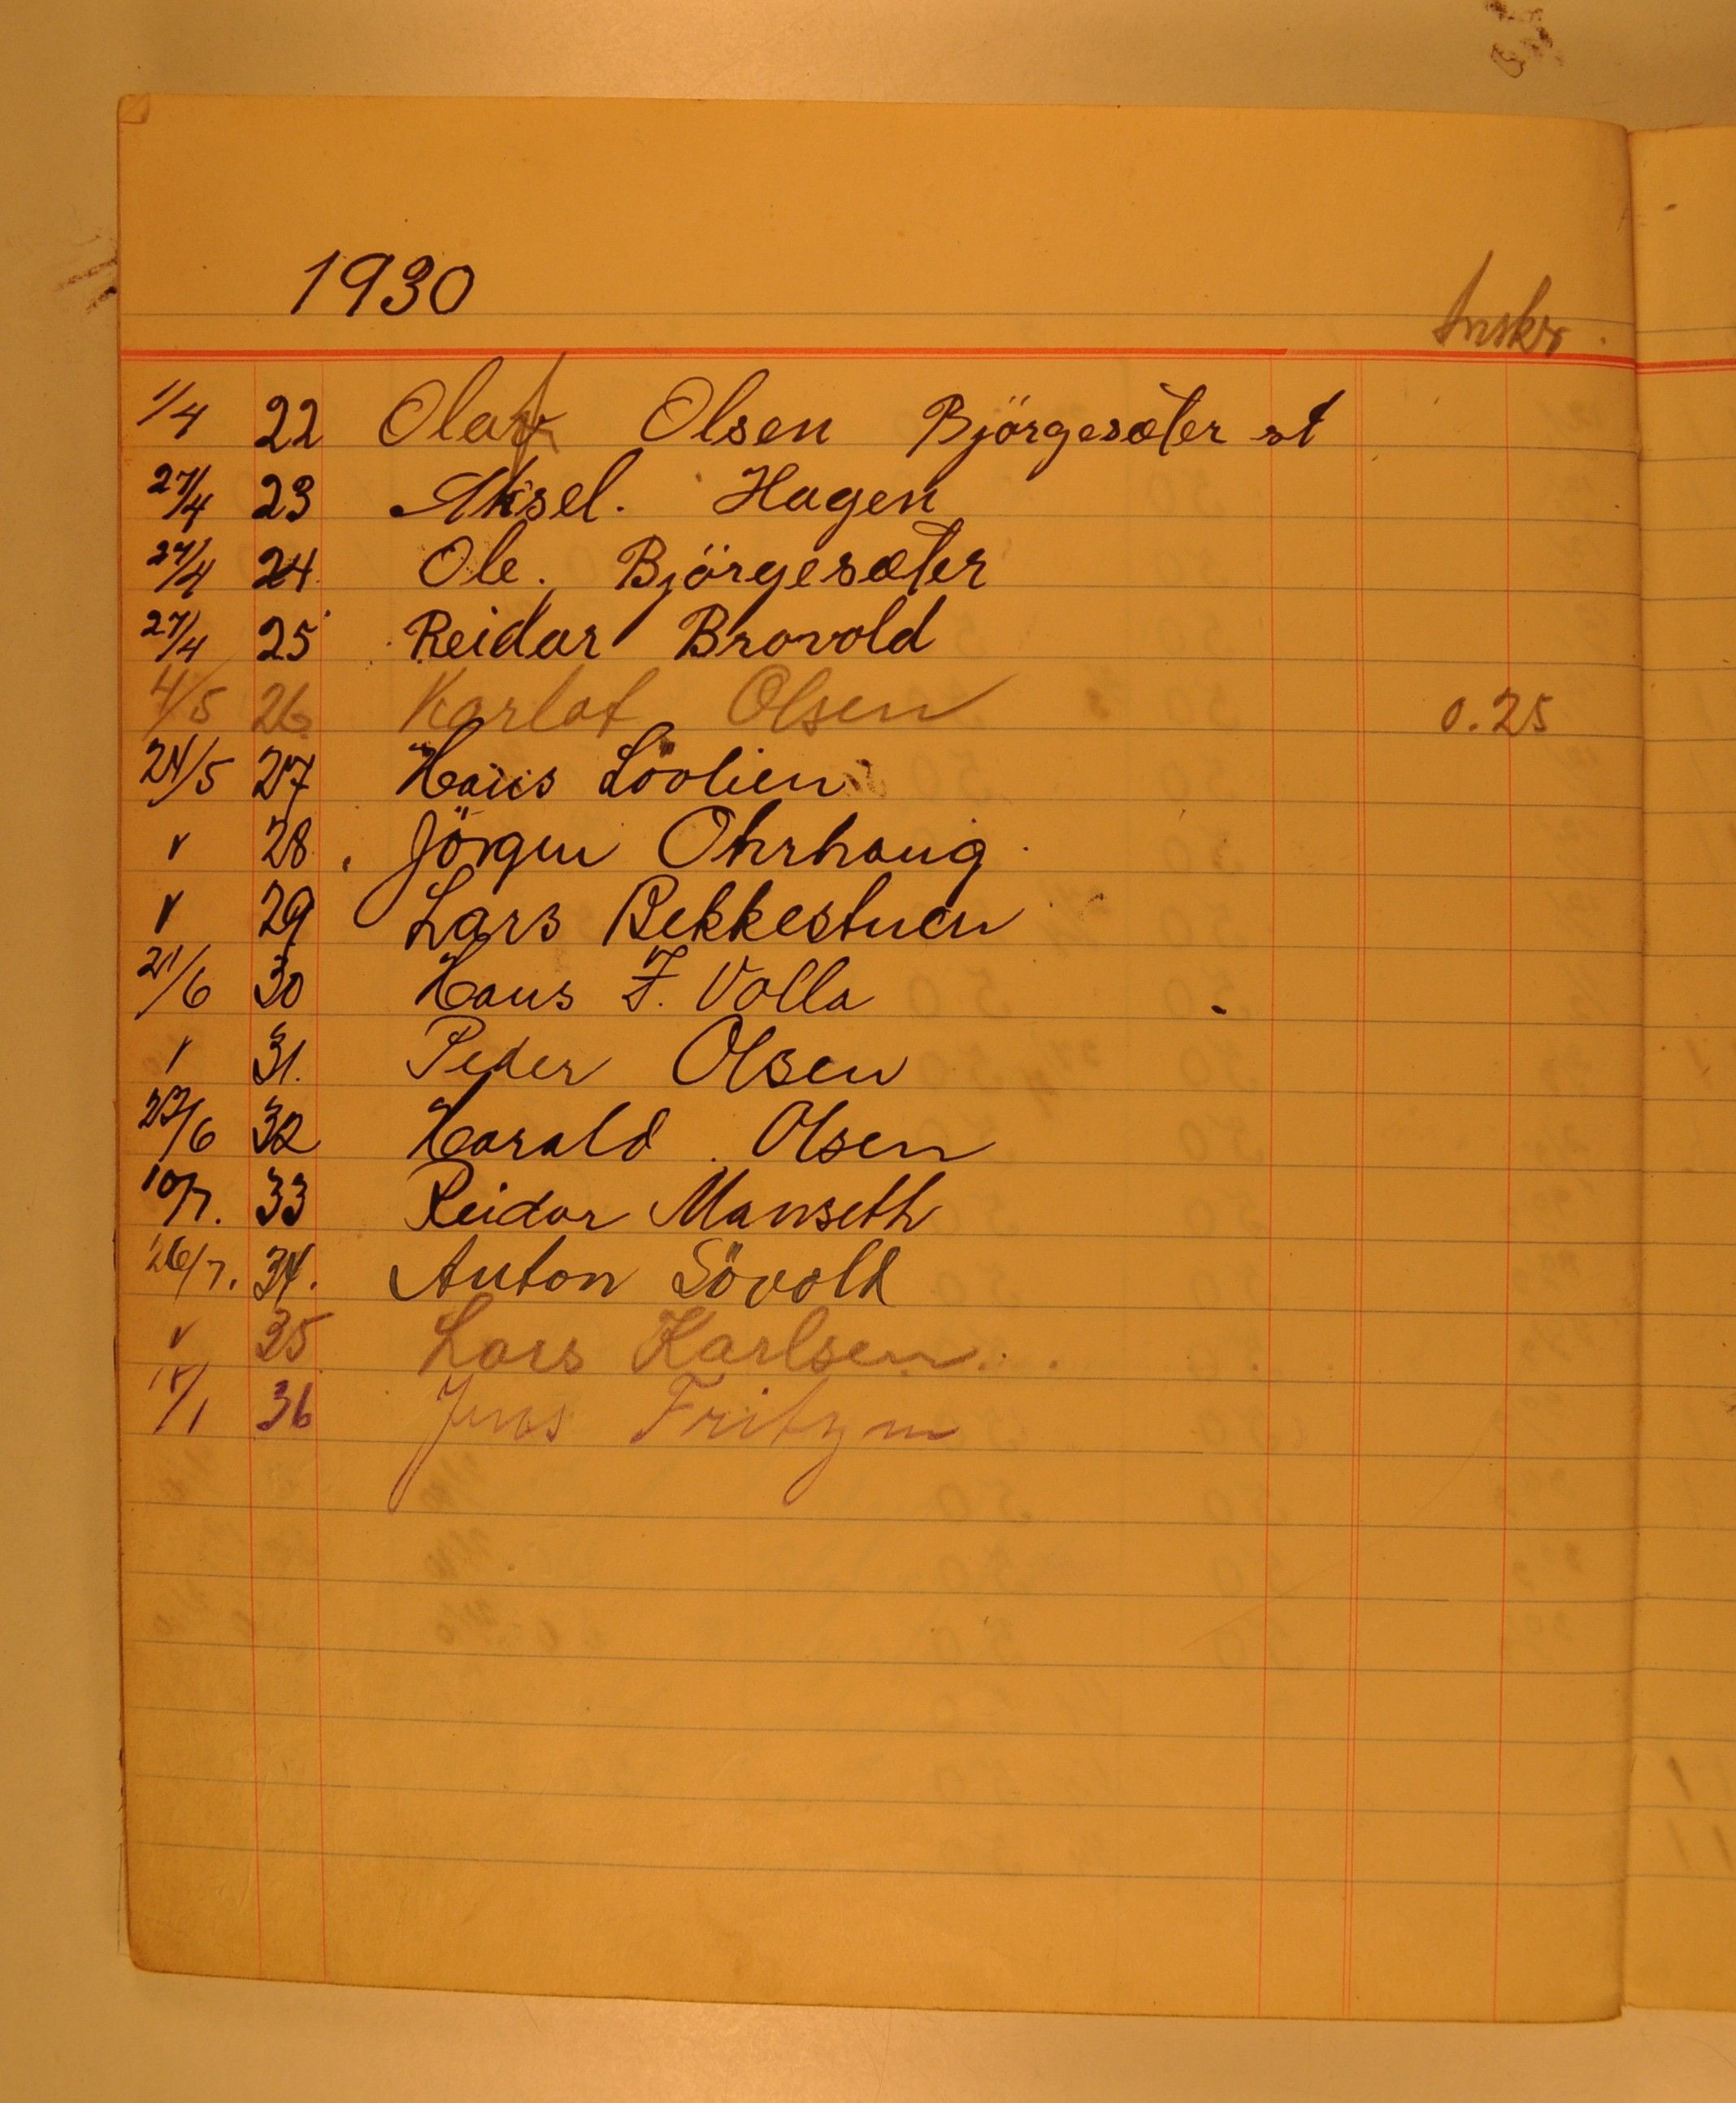 1930
Innskr.
1/4 22 Olaf Olsen Björgesæter st
27/4 23 Aksel. Hagen
27/4 24 Ole. Björgesæter
27/4 25 Reidar Brovold
4/5 26. Karlot Olsen 0.25
24/5 27 Hans Lövlien
" 28. Jörgen Ohrhaug
" 29 Lars Bekkestuen
21/6 30 Hans F. Volla
" 31. Peder Olsen
22/6 32 Harald Olsen
10/7. 33 Reidar Manseth
26/7. 34. Anton Sövold
" 35 Lars Karlsen
18/1 36 Jens Fritzen